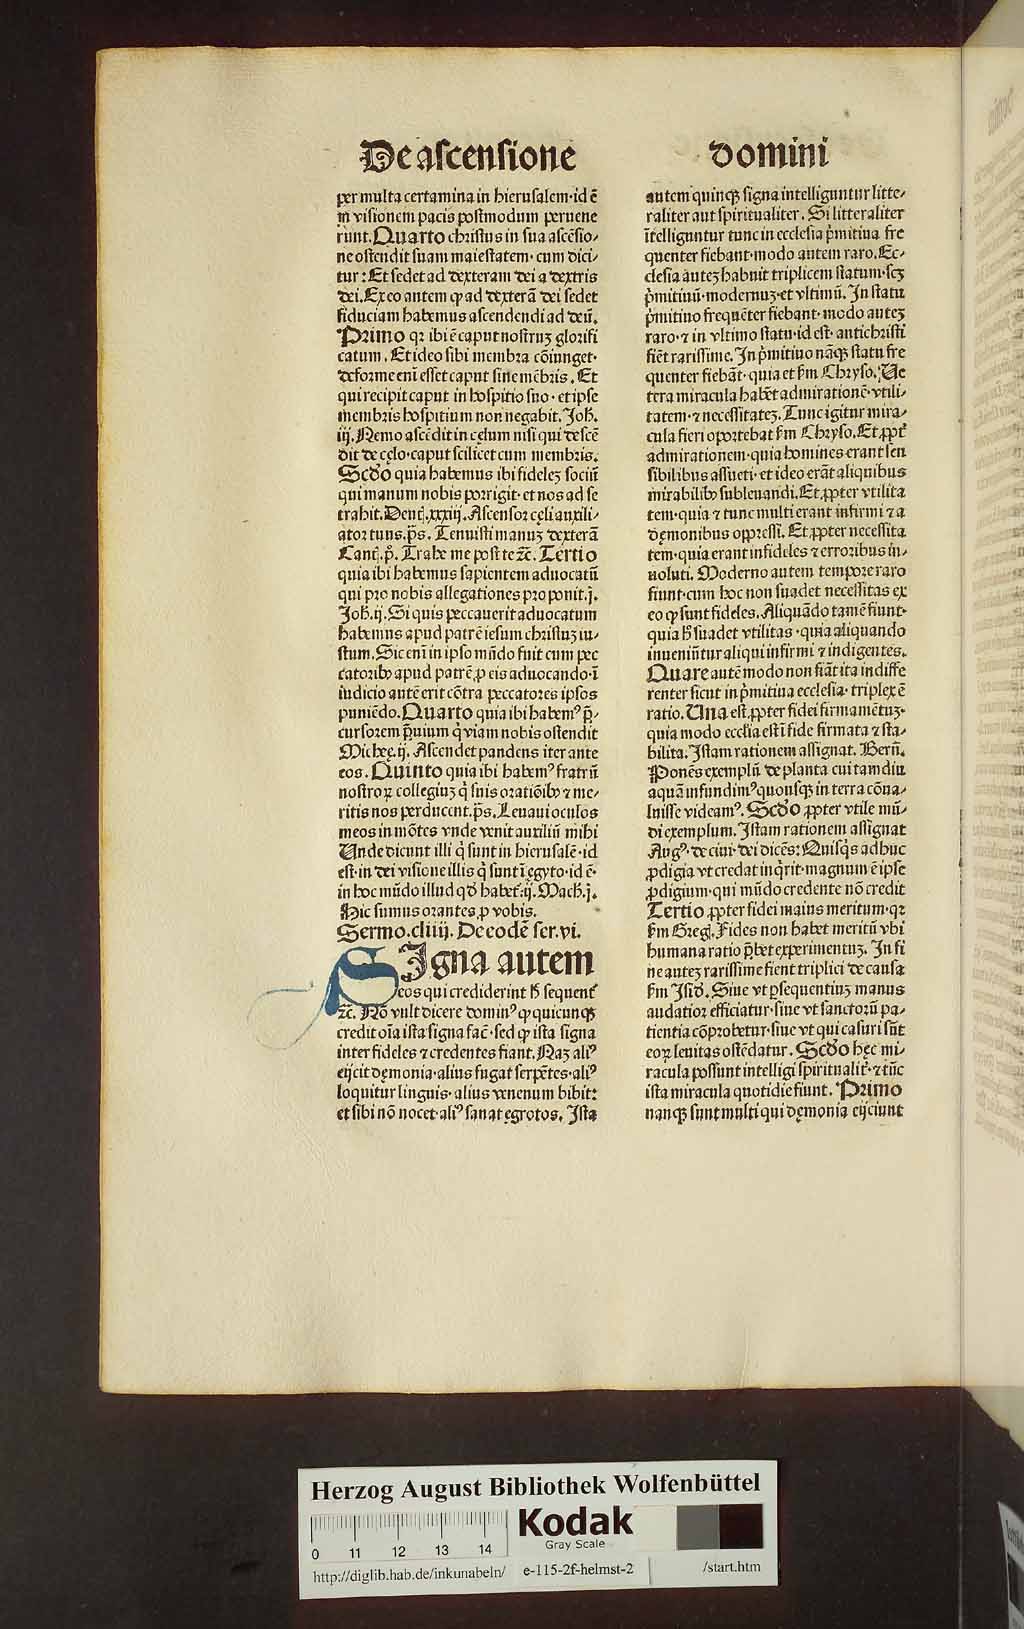 De ascensione
domini
per multa certamina in hierusalem·id ē
in visionem pacis postmodum peruene
runt. Quarto christus in sua ascēsio⸗
ne ostendit suam maiestatem· cum dici⸗
tur: Et sedet ad dexteram dei a dextris
dei. Ex eo autem ꝙ ad dexterā dei sedet
fiduciam habemus ascendendi ad deū.
Primo qꝛ ibi ē caput nostruꝫ glorifi
catum. Et ideo sibi membra cōiunget·
deforme enī esset caput sine mēbris. Et
qui recipit caput in hospitio suo· et ipse
membris hospitium non negabit. Joh̄.
iij. Nemo ascēdit in cęlum nisi qui descē
dit de cęlo·caput scilicet cum membris.
Scd̄o quia habemus ibi fideleꝫ sociū
qui manum nobis porrigit· et nos ad se
trahit. Deut̄. xxxiij. Ascensor cęli auxili⸗
ator tuus. p̄s. Tenuisti manuꝫ dexterā
Cant̄. p̄. Trahe me post te ⁊c̄. Tertio
quia ibi habemus sapientem aduocatū
qui pro nobis allegationes proponit. j.
Joh̄. ij. Si quis peccauerit aduocatum
habemus apud patrē iesum christuꝫ iu⸗
stum. Sic enī in ipso mūdo fuit cum pec
catoribꝰ apud patrē ꝓ eis aduocando·ī
iudicio autē erit cōtra peccatores ipsos
puniēdo. Quarto quia ibi habemꝰ p̄⸗
cursorem p̄uium q̇ viam nobis ostendit
Micheę. ij. Ascendet pandens iter ante
eos. Quinto quia ibi habemꝰ fratrū
nostroꝝ collegiuꝫ q̇ suis oratiōibꝰ ⁊ me⸗
ritis nos perducent. p̄s. Leuaui oculos
meos in mōtes vnde venit auxiliū mihi
Unde dicunt illi q̇ sunt in hierusalē·id
est·in dei visione illis q̇ sunt ī egyto·id ē·
in hoc mūdo illud qd̄ habet̄. ij. Mach̄. j.
Hic sumus orantes ꝓ vobis.
Sermo. cliiij. De eodē fer. vi.
SIgna autem
eos qui crediderint h̄ sequent̄
⁊c̄. Nō vult dicere dominꝰ ꝙ quicunqꝫ
credit oīa ista signa fac̄· sed ꝙ ista signa
inter fideles ⁊ credentes fiant. Naꝫ aliꝰ
eijcit dęmonia·alius fugat serpētes·aliꝰ
loquitur linguis·alius venenum bibit:
et sibi nō nocet·aliꝰ sanat ęgrotos. Ista
autem quinqꝫ signa intelliguntur litte⸗
raliter aut spiritualiter. Si litteraliter
ītelliguntur tunc in ecclesia p̄mitiua fre
quenter fiebant·modo autem raro. Ec⸗
clesia auteꝫ habuit triplicem statum·scꝫ
p̄mitiuū·modernuꝫ·et vltimū. In statu
p̄mitiuo frequēter fiebant· modo auteꝫ
raro·⁊ in vltimo statu·id est· antichristi
fiēt rarissime. In p̄mitiuo nāqꝫ statu fre
quenter fiebāt· quia et s̄m Chryso. Ue
tera miracula habēt admirationē·vtili⸗
tatem·⁊ necessitateꝫ. Tunc igitur mira⸗
cula fieri oportebat s̄m Chryso. Et ꝓpt̄
admirationem·quia homines erant sen
sibilibus assueti·et ideo erāt aliquibus
mirabilibꝰ subleuandi. Et ꝓpter vtilita
tem·quia ⁊ tunc multi erant infirmi ⁊ a
dęmonibus oppressi. Et ꝓpter necessita
tem·quia erant infideles ⁊ erroribus in⸗
uoluti. Moderno autem tempore raro
fiunt·cum hoc non suadet necessitas ex
eo ꝙ sunt fideles. Aliquādo tamē fiunt·
quia h̄ suadet vtilitas·quia aliquando
inueniūtur aliqui infirmi ⁊ indigentes.
Quare autē modo non fiāt ita indiffe
renter sicut in p̄mitiua ecclesia· triplex ē
ratio. Una est ꝓpter fidei firmamētuꝫ·
quia modo ecclīa est ī fide firmata ⁊ sta⸗
bilita. Istam rationem assignat. Bern̄.
Ponēs exemplū de planta cui tam diu
aquā infundimꝰ quousqꝫ in terra cōua⸗
luisse videamꝰ. Scd̄o ꝓpter vtile mū⸗
di exemplum. Istam rationem assignat
Augꝰ. de ciui·dei dicēs: Quisq̇s adhuc
ꝓdigia vt credat inq̇rit·magnum ē ipse
ꝓdigium·qui mūdo credente nō credit
Tertio ꝓpter fidei maius meritum·qꝛ
s̄m Greḡ. Fides non habet meritū vbi
humana ratio p̄bet experimentuꝫ. In fi
ne auteꝫ rarissime fient triplici de causa
s̄m Isid̄. Siue vt ꝑsequentiuꝫ manus
audatioꝛ efficiatur·siue vt sanctorū pa⸗
tientia cōprobetur·siue vt qui casuri sūt
eoꝝ leuitas ostēdatur. Scd̄o hęc mi⸗
racula possunt intelligi spiritualit̄·⁊ tūc
ista miracula quotidie fiunt. Primo
nanqꝫ sunt multi qui dęmonia eijciunt
Herzog August Bibliothek Wolfenbüttel
Kodak
Gray Scale
0 11 12 13 14
http://diglib.hab.de/inkunabeln/ e-115-2f-helmst-2 /start.htm